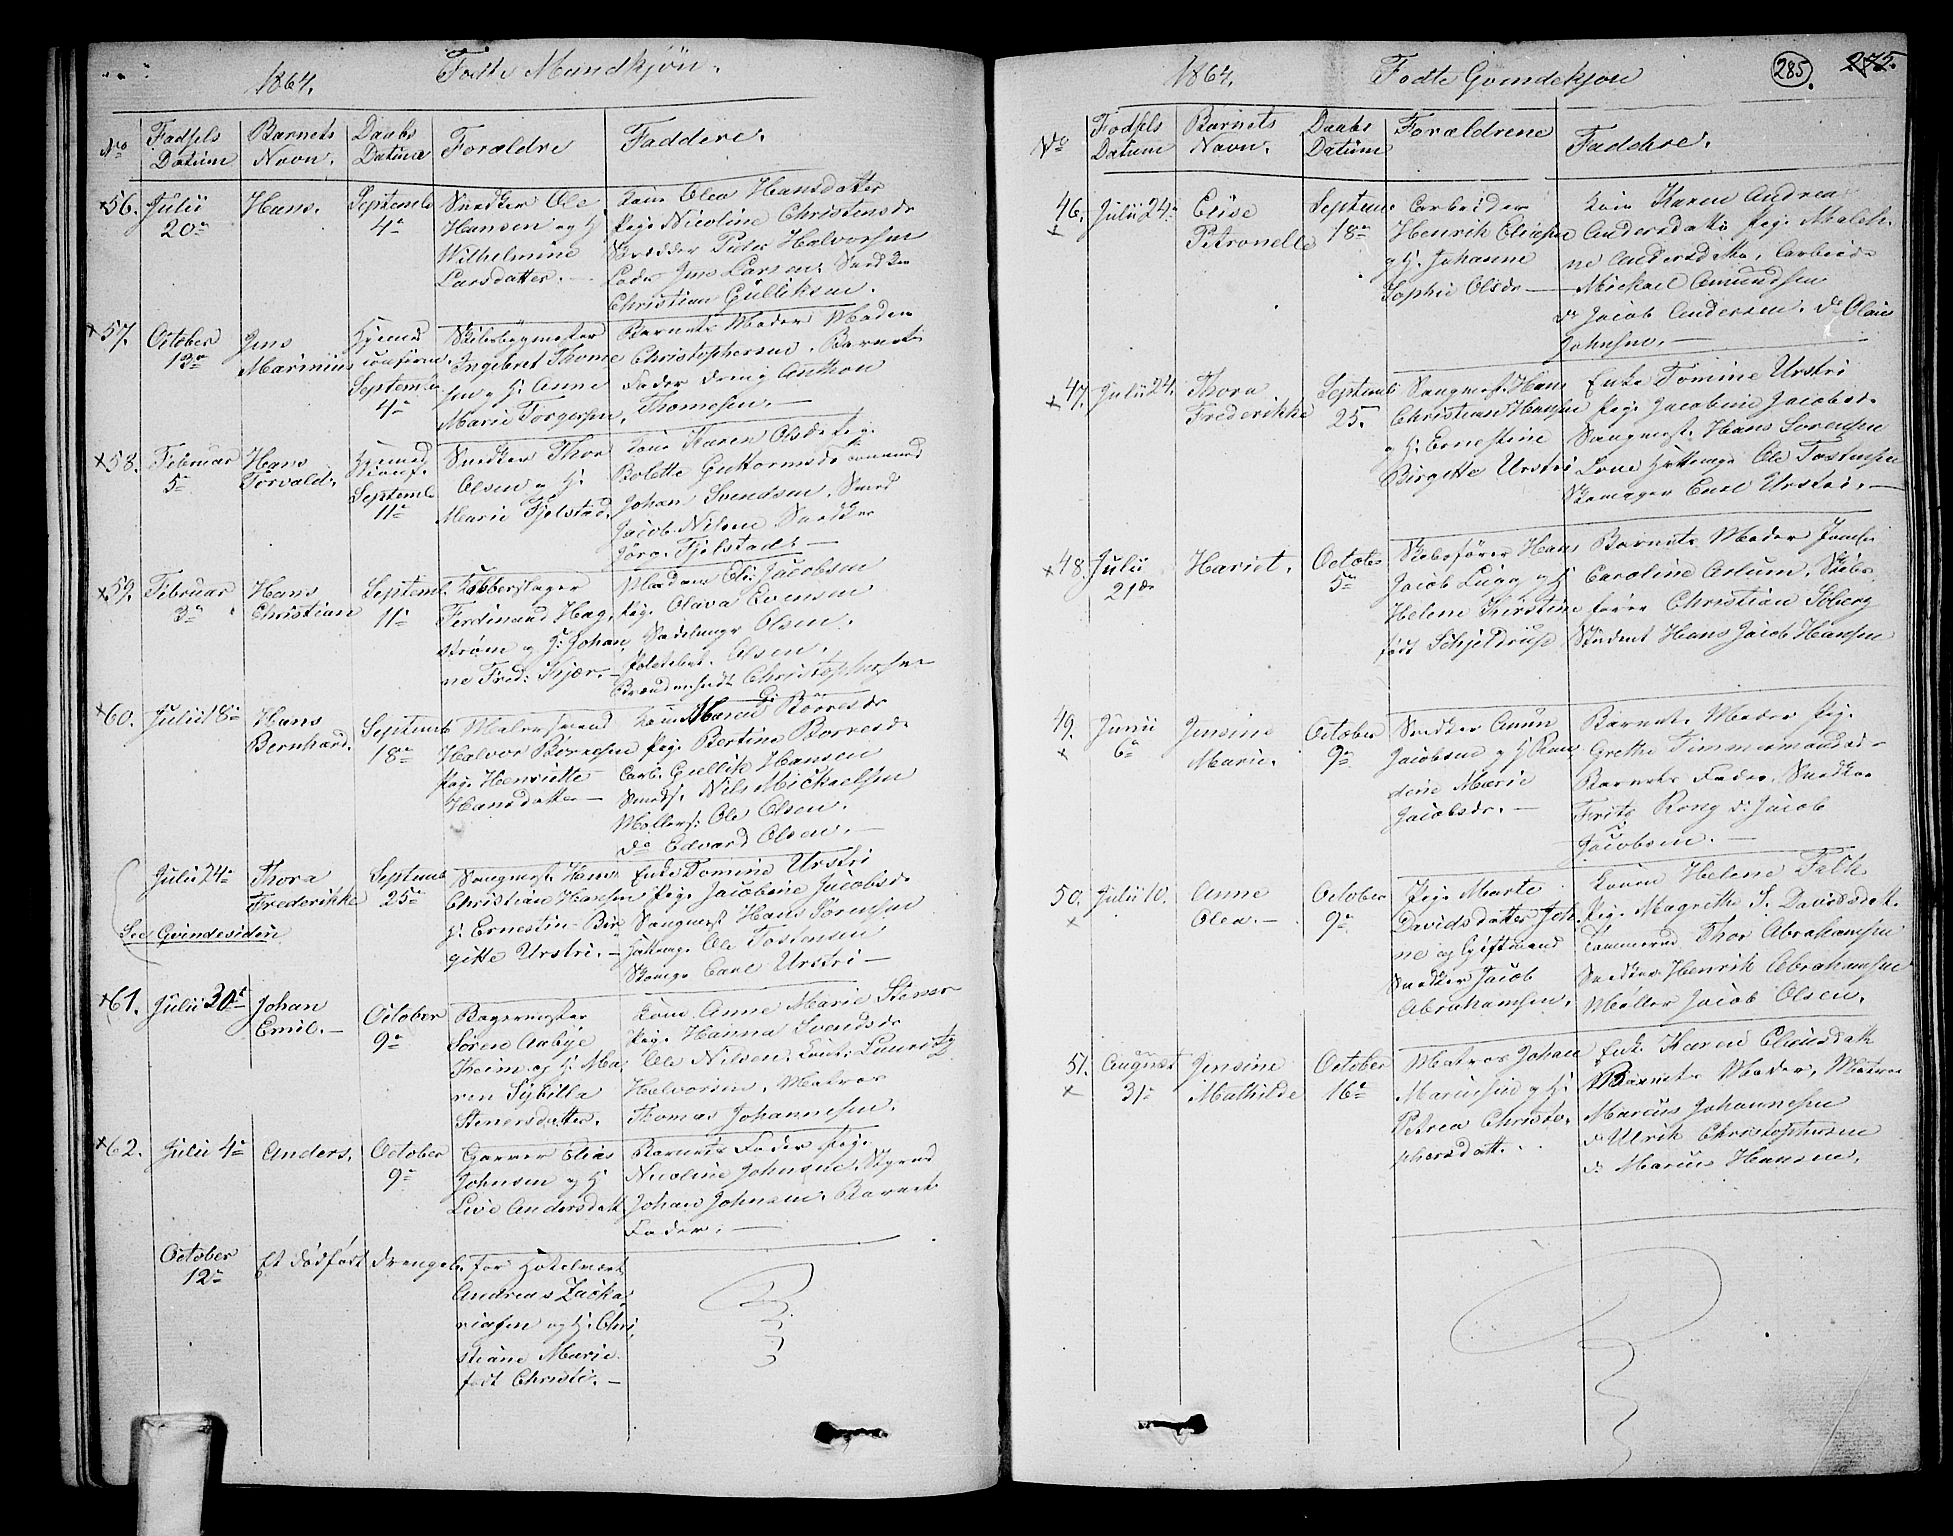 1864. Fødte Mandkjøn.
No
Fødsels Datum
Barnets Navn.
Daabs Datum
Forældre
Faddere.
56. Julii 20de
Hans.
Septemb 4de
Snedker Ole
Hansen og H.
Wilhelmine
Larsdatter.
Kone Olea Hansdatter
Pige Nicoline Christensdr
Skrædder Peter Halvorsen
Lods Jens Larsen, Snedker
Christian Gulliksen.
57. October 13de
Jens
Marinius
Hjemmed
confirm.
Septemb
4de
Skibsbygmester
Ingebret Thome
sen og H. Anne
Marie Torgersen.
Barnets Moder, Maden
Christophersen, Barnets
Fader, Anthon
Thomesen.
58. Februar 5te
Hans
Torvald.
Hjemmed
Septemb
11te
Snedker Thor
Olsen og H.
Marie Fjelstad.
Kone Karen Olsdr Pige
Bolette Guttormsdr
Johan Svendsen, Smed
Jacob Nilsen Snedker
Jörg. Fjelstad.
59. Februar 3de
Hans
Christian
Septemb 11te
Kobberslager
Ferdinand Hag
strøm og H. Johan
ne Fred. Kjær.
Madam Eli Jacobsen
Pige Olava Evensen
Sadelmagr Olsen.
Politibet. Olsen.
Christophersen
60. Julii 18de
Hans
Bernhard.
Septemb
18de
Malersvend
Halvor Børresen
Pige Henriette
Hansdatter
Kone Maren Børresdr
Pige Bertine Børresdr
Arb. Gullik Hansen
Smeds. Nils Mickaelsen
Møllers. Ole Olsen.
do Edvard Olsen.
Julii 24de
Thora
Frederikke
Septemb
25de
Sangmest. Hans
Christian Hansen
H. Ernestine Bir
gitte Urstri.
Enke Tomine Urstri
Pige Jacobine Jacobsdr
Sangmest Hans Sørensen
Ole Tostensen,
Skomgr Carl Urstri
See Qvindesiden
61. Julii 30te
Johan
Emil.
October
9de
Bagermester
Søren Aabye
Heim og H. Ma
ren Sybilla
Stenersdatter.
Kone Anne Marie Stener
Pige Hanna Svendsdr
Ole Nilsen, Laurits
Halvorsen, Matros
Thomas Johannesen.
62. Julii 4de
Anders.
October
9de
Garver Elias
Johnsen og H.
Live Andersdatt
Barnets Fader Pige
Nicoline Johnsen, Styrmd
Johan Johnsen, Barnets
Fader.
October
12te
Et dødfødt Drengeb.
for Hotelvært
Andreas Zacka
riasen og H. Chri
stiane Marie
født Christi.
285. 275.
1864. Fødte Qvindekjøn
No
Fødsels Datum
Barnets Navn.
Daabs Datum
Forældrene
Faddere.
46. Julii 24de
Elise
Petronelle
Septem
18de
Arbeider
Henrik Eliasen
og H. Johanne
Sophie Olsdr
Kone Karen Andrea
Andersdatter Pige Malch
ne Andersdatter, Arbeider
Mickael Amundsen
do Jacob Andersen, do Olaus
Johnsen.
47. Julii 24.
Thora
Frederikke
Septemb
25.
Sangmest. Hans
Christian Hansen
og H. Ernestine
Birgitte Urstri
Enke Tomine Urstri
Pige Jacobine Jacobsdr
Sangmest. Hans Sørensen
Ole Tostensen
Skomager Carl Urstri.
48. Julii
21de
Hariet.
Octobr
5te
Skibsfører Hans
Jacob Lugg og H
Helene Kirstine
født Schjeldrup
Barnets Moder Jomfr
Caroline Aslum, Skibs
fører Christian Soberg
Student Hans Jacob Hansen
49. Junii
6te
Jensine
Marie.
October
9de
Snedker Amun
Jacobsen og H
dine Marie
Jacobsdr.
Barnets Moder Pige
Grethe Timmermandsdr
Barnets Fader, Snedker
Frits Rong do Jacob
Jacobsen.
50. Julii 10.
Anne
Olea.
October
9de
Pige Marte
Davidsdatter
og Giftmand
Snedker Jacob
Abrahamsen.
Konen Helene Falk
Pige Magrethe S. Davidsdatt
Tømmermd Thor Abrahamsen
Snedker Henrik Abrahamsen
Møller Jacob Olsen.
51. August
31te
Jensine
Mathilde
October
16de
Matros Johan
Mariussen og H.
Petrea Christo
phersdatt.
Enke Karen Clausdatt
Barnets Moder, Matros
Marcus Johannesen
do Ulrik Christophersen
do Marius Hansen.